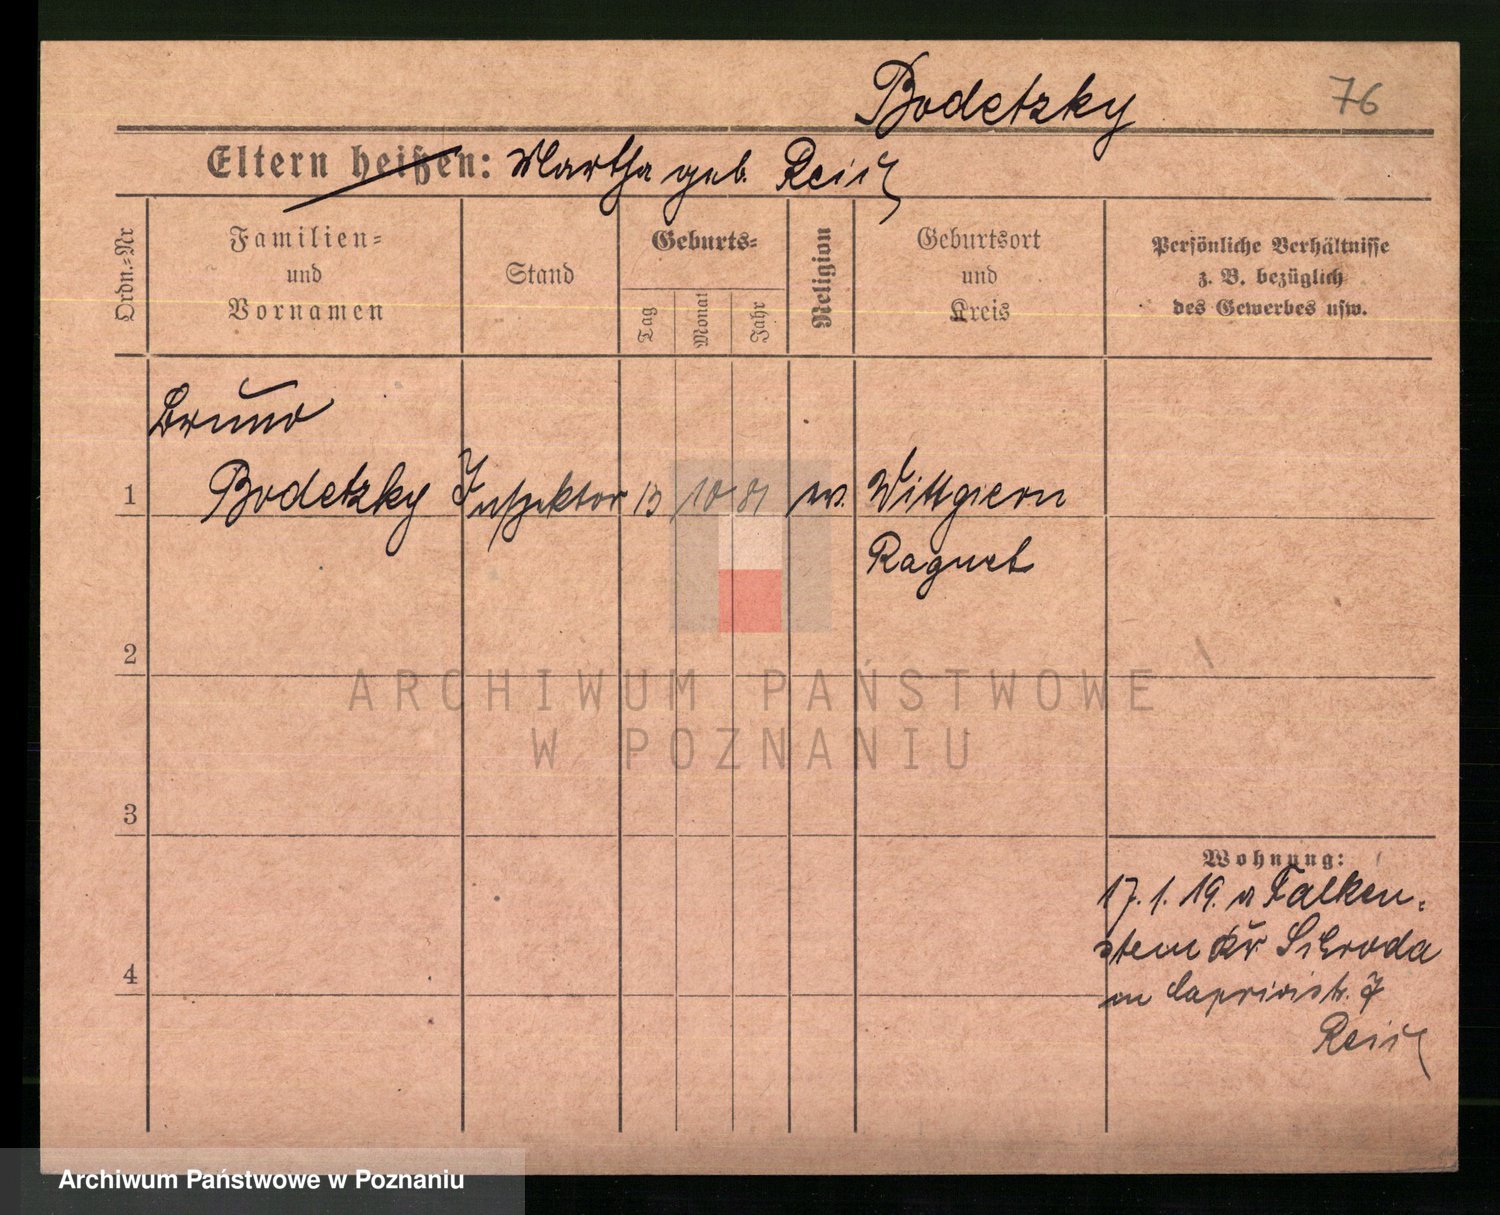 Bodetzky
76
Eltern heißen: Martha geb. Reich
Ordn.-Nr
Familien-
und
Vornamen
Stand
Geburts-
Tag
Monat
Jahr
Religion
Geburtsort
und
Kreis
Persönliche Verhältnisse
z. B. bezüglich
des Gewerbes usw.
Bruno
1 Bodetzky Inspektor 13 10 81 ev. Wittgiern
Ragnet
2
ARCHIWUM PAŃSTWOWE
W POZNANIU
3
Wohnung:
17. 1. 19. a Falken-
stein Kr Schroda
Caprivistr. 7
4
Reich
Archiwum Państwowe w Poznaniu